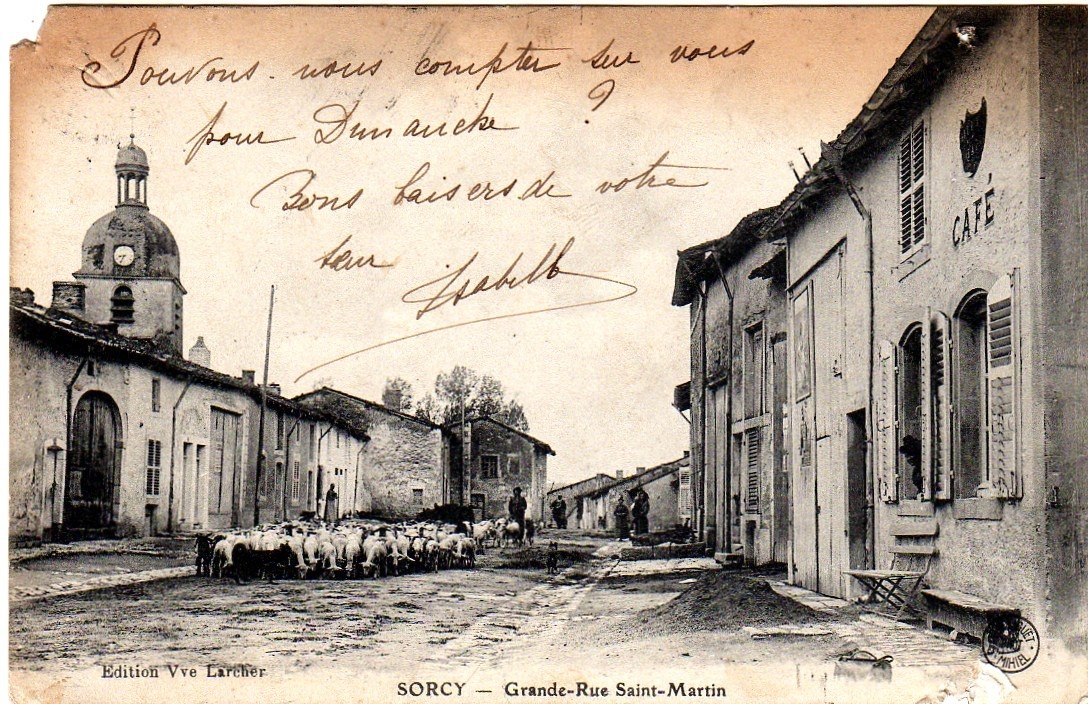 Pouvons-nous compter sur vous
pour Dimanche ?
Bons baisers de votre
sœur
Isabelle
CAFÉ
Edition Vve Larcher
SORCY — Grande-Rue Saint-Martin
MIHIEL